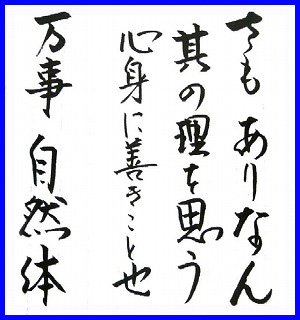 さも ありなん
其の理を思う
心身に善きこと也
万事 自然体